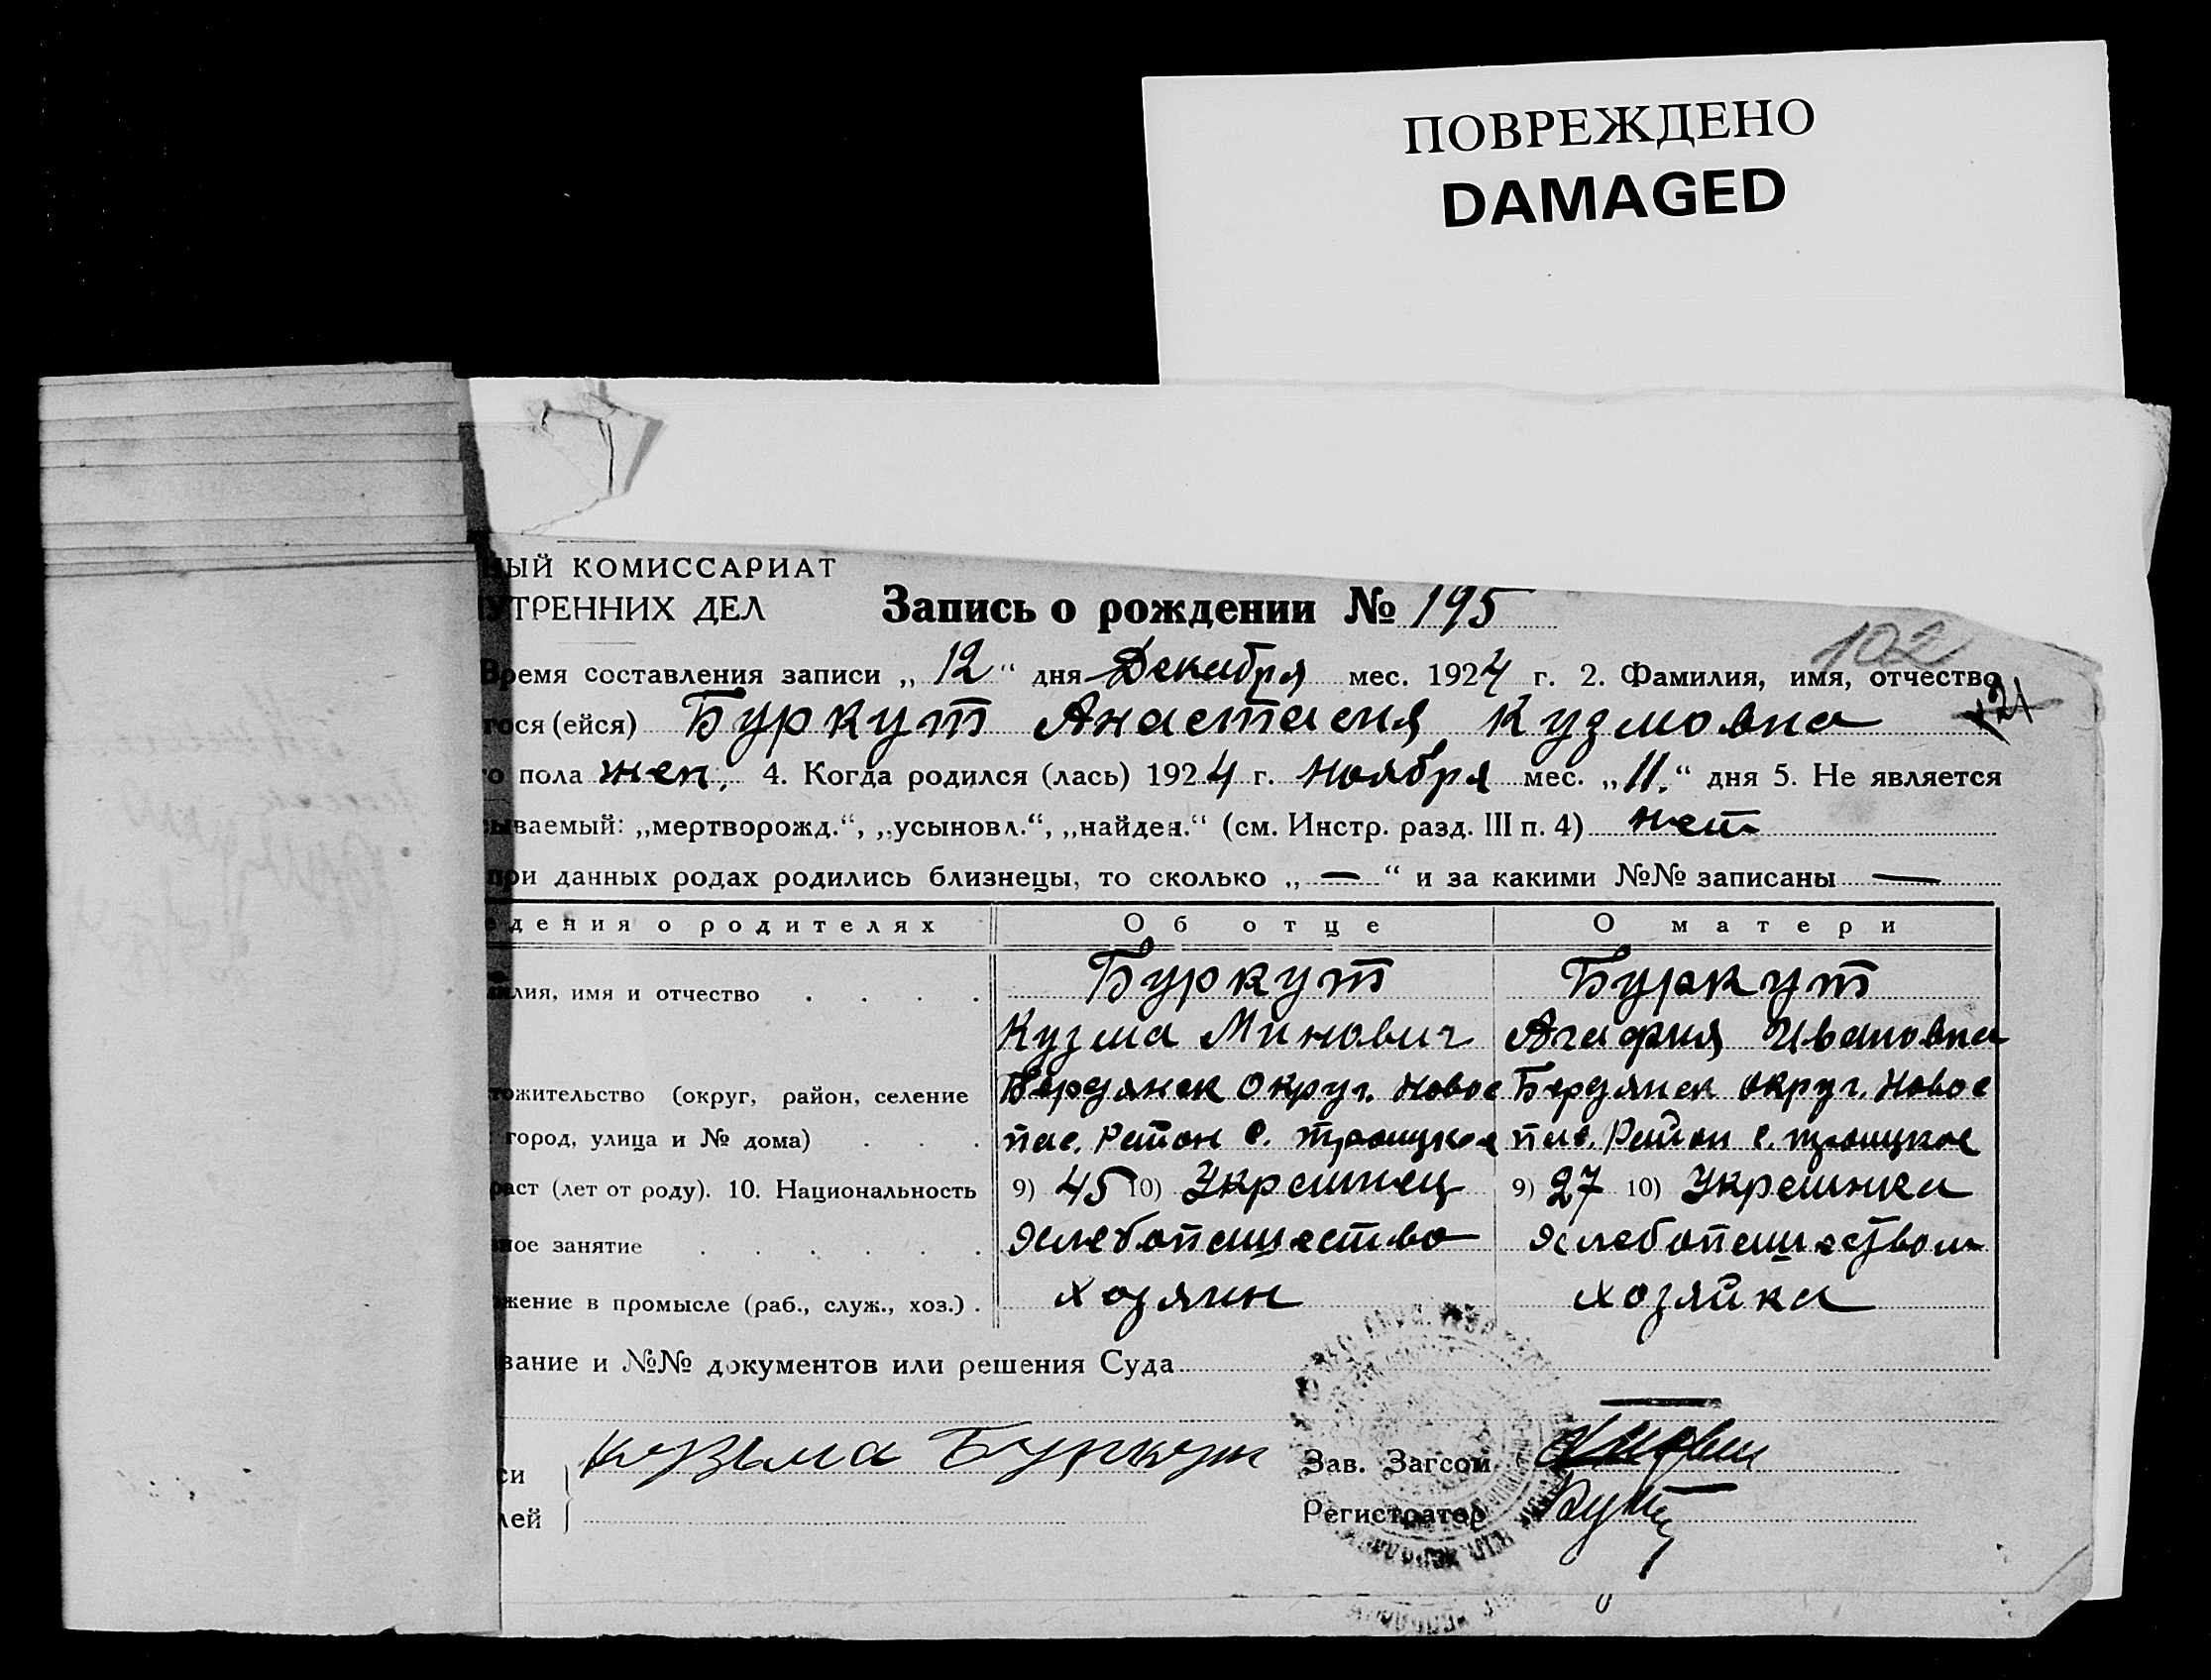 ПОВРЕЖДЕНО
DAMAGED
НЫЙ КОМИССАРИАТ
УТРЕННИХ ДЕЛ
Запись о рождении № 195
102
Время составления записи „ 12 “ дня Декабря мес. 1924 г. 2. Фамилия, имя, отчество
гося (ейся) Буркут Анастасия Кузмовна
21
го пола жен. 4. Когда родился (лась) 1924 г. Ноября мес. „ 11. “ дня 5. Не является
сываемый: „мертворожд.“, „усыновл.“, „найден.“ (см. Инстр. разд. III п. 4) нет
при данных родах родились близнецы, то сколько „ — “ и за какими №№ записаны —
едения о родителях Об отце О матери
илия, имя и отчество . . . . Буркут Буркут
Кузма Минович Агафия Ивановна
тожительство (округ, район, селение Бердянск Округ. Новос Бердянск округ. Новос
город, улица и № дома) . . . пас. Район с. Троицкое пас. Район с. Троицкое
раст (лет от роду). 10. Национальность 9) 45 10) Украинец 9) 27 10) Украинка
ное занятие . . . . . . Хлебопашество Хлебопашеством
жение в промысле (раб., служ., хоз.) . хозяин хозяйка
вание и №№ документов или решения Суда
си Кузьма Буркут Зав. Загсом
лей Регистратор